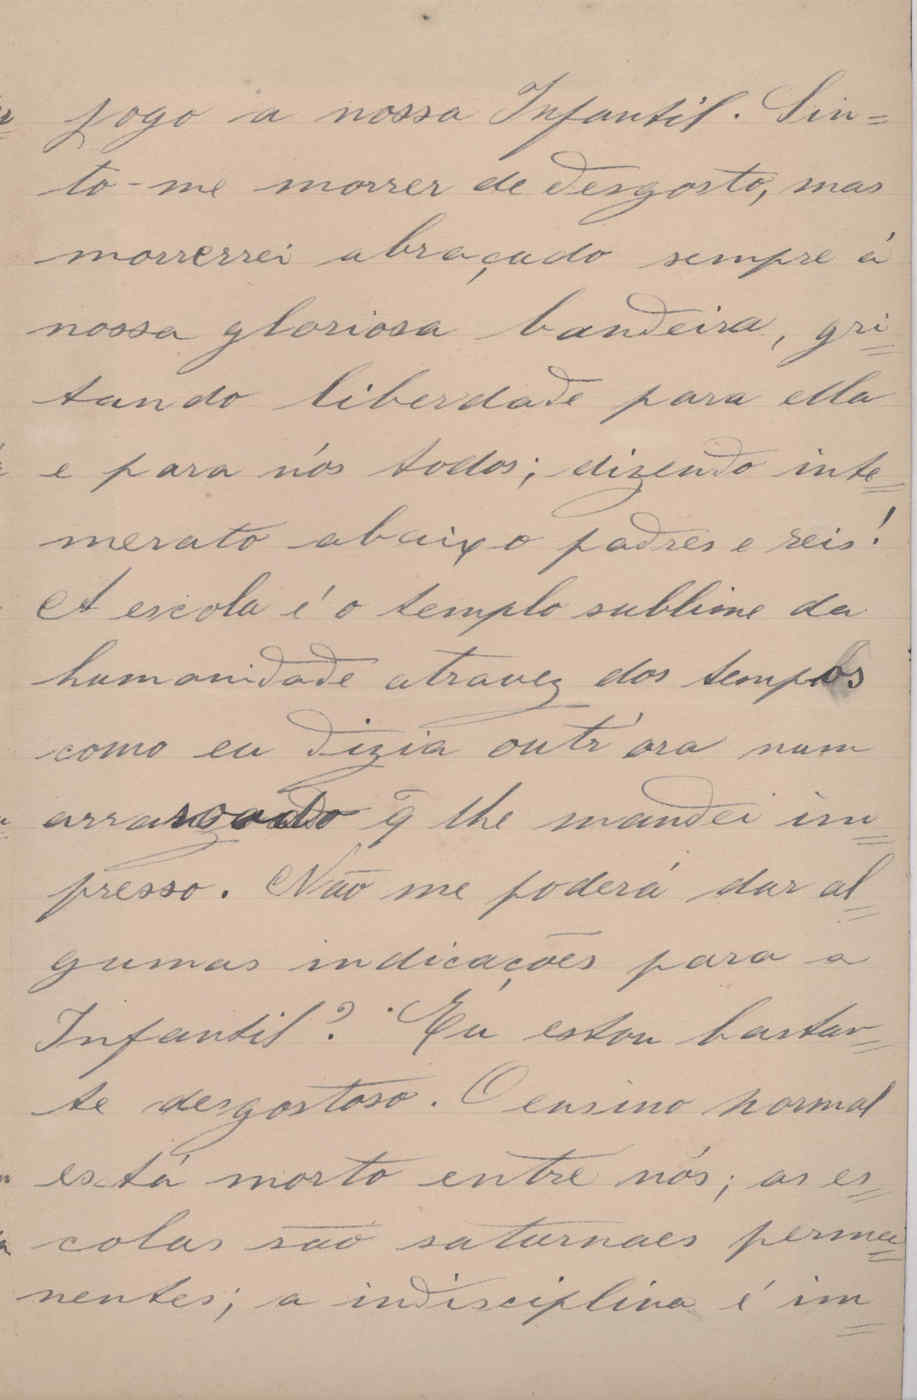 jogo a nossa Infantil. Sin=
to-me morrer de desgosto, mas
morrerrei abraçado sempre á
nossa gloriosa bandeira, gri=
tando liberdade para ella
e para nós todos; dizendo inte=
merato abaixo padres e reis!
A escola é o templo sublime da
humanidade atravez dos tempos
como eu dizia outr'ora num
arrazoado q̃ lhe mandei im=
presso. Não me poderá dar al=
gumas indicações para a
Infantil? Eu estou bastan=
te desgostoso. O ensino normal
está morto entre nós; as es=
colas são saturnaes perma=
nentes; a indisciplina é im=